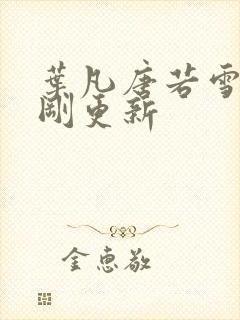 葉凡唐若雪
剛更新
金惠敬